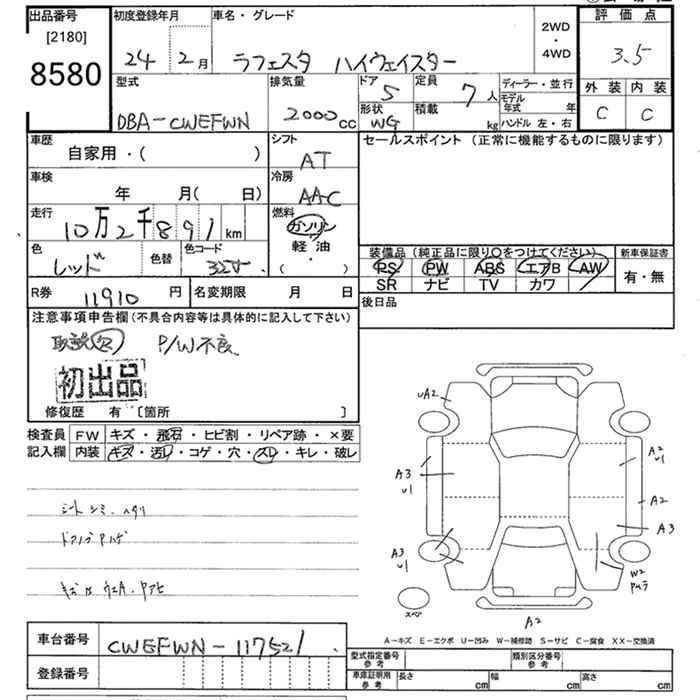 出品番号 初度登録年月 車名・グレード 評価点
[2180]
8580 24 2月 ラフェスタ ハイウェイスター 2WD・4WD 3.5
型式 排気量 ドア 定員 ディーラー・並行 外装 内装
DBA-CWEFWN 2000cc 5 7人 モデル年式 年 C C
形状 積載 ハンドル 左・右
WG kg
車歴 シフト セールスポイント(正常に機能するものに限ります)
自家用・( ) AT
車検 冷房
年 月( 日) AAC
走行 燃料
10万2千891km ガソリン
軽油
・
( )
色 色替 色コード 装備品(純正品に限り○をつけてください) 新車保証書
レッド PS PW ABS エアB AW 有・無
SR ナビ TV カワ
R券 11910円 名変期限 月 日 後日品
注意事項申告欄(不具合内容等は具体的に記入して下さい)
取説欠 P/W不良
初出品
修復歴 有[箇所 ]
検査員 FW キズ・飛石・ヒビ割・リペア跡・×要
記入欄 内装 キズ・汚レ・コゲ・穴・スレ・キレ・破レ
シート シミ・ヘタリ
ドアノブ ハゲ
uA2
A3
u1
A3
u1
A2
u1
A2
A3
W2
スペア
A2
A-キズ E-エクボ U-凹み W-補修跡 S-サビ C-腐食 XX-交換済
車台番号 CWEFWN-117521 型式指定番号 参考 類別区分番号 参考
登録番号 車庫証明用 参考 長さ cm 幅 cm 高さ cm